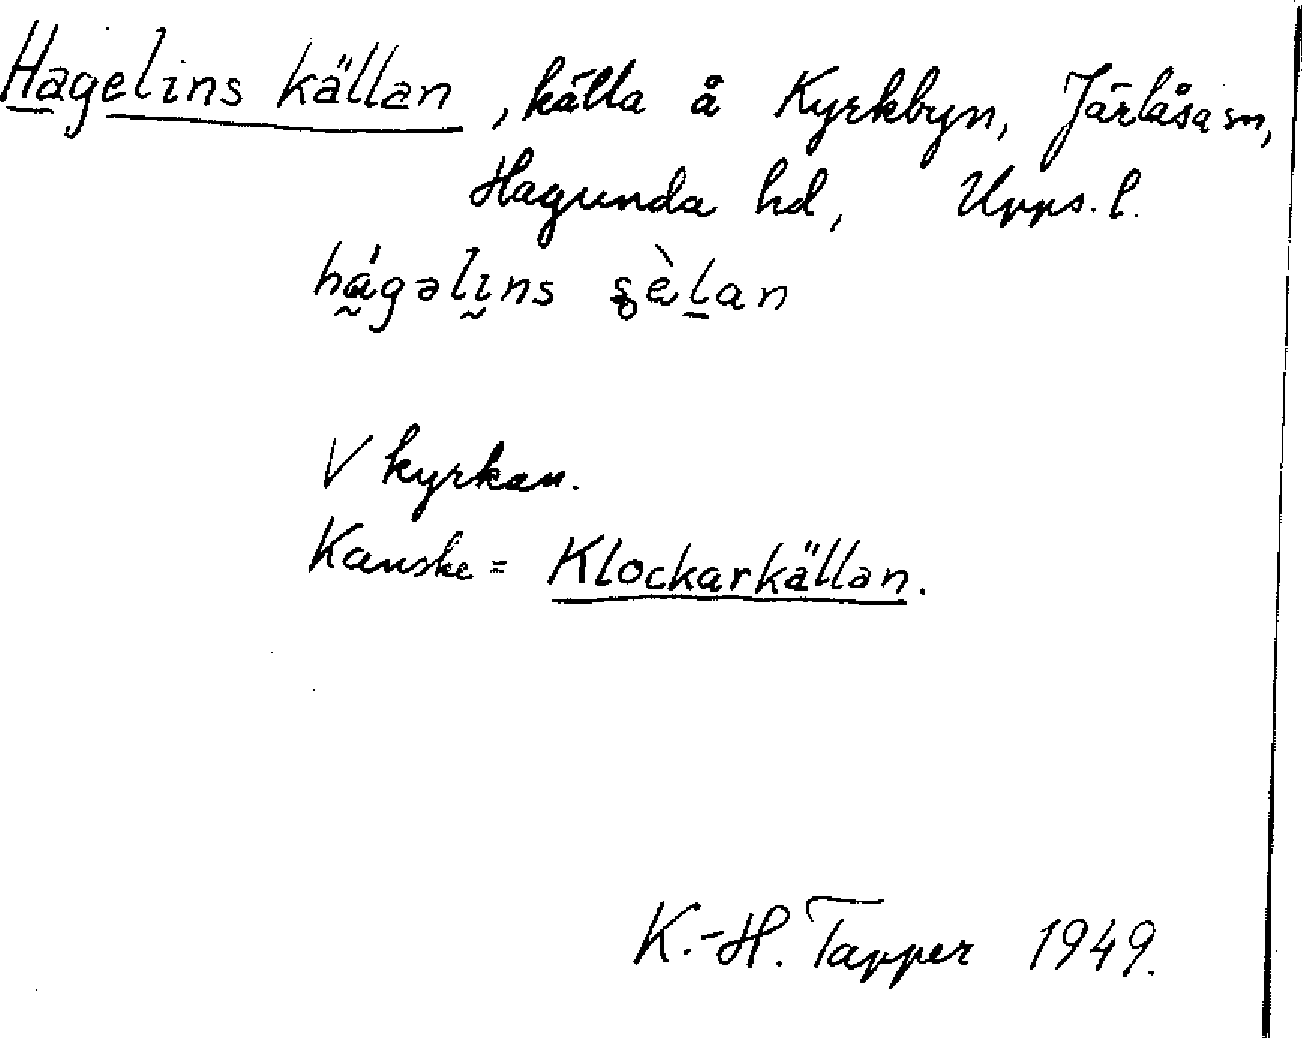 Hagelins källan, källa å Kyrkbyn, Järlåsa sn,
Hagunda hd, Upps. l.
há̰gəlḭns ʂèḻan
V kyrkan.
Kanske = Klockarkällan.
K.-H. Tapper 1949.